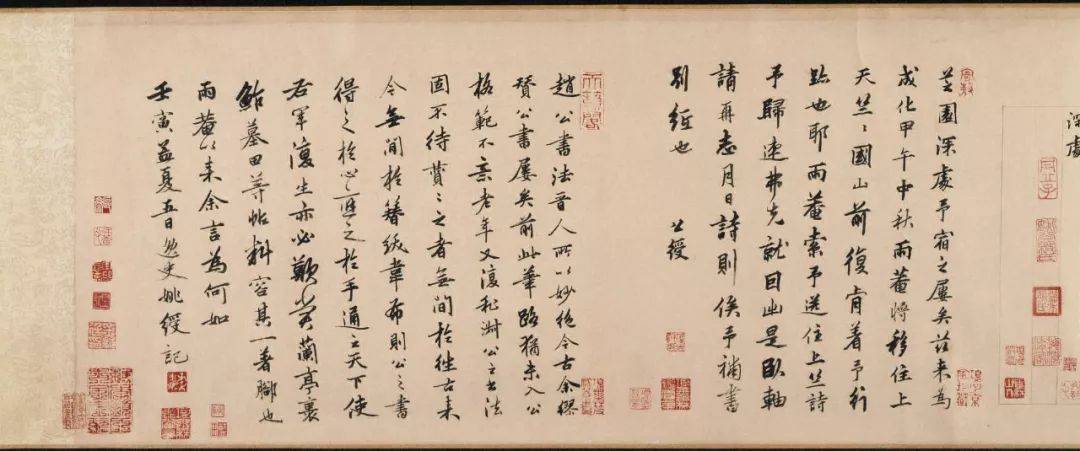 深處
芝園深處予宿之屢矣茲來為
成化甲午中秋雨菴將移住上
天竺〻國山前復肯着予行
跡也耶雨菴索予送住上竺詩
予歸速弗先就因出是臥軸
請再志月日詩則俟予補書
別紙也 公綬
趙公書法晉人所以妙絕今古余
賛公書屢矣前此華路猶未入公
格範不意老年又復公之書法
固不待賛〻之者無間於往古來
今無間於簪紱韋布則公之書
得之於心運之於手通之天下使
右軍復生亦必歎賞蘭亭裹
鮓墓田等帖料容其一著腳也
雨菴以來余言為何如
壬寅孟夏五日逸史姚綬記